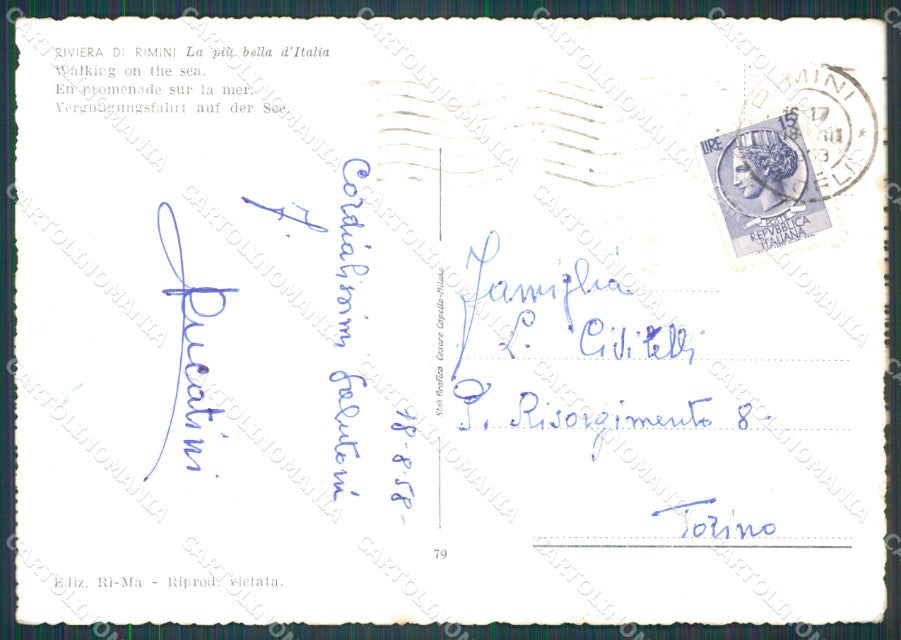 RIVIERA DI RIMINI La più bella d'Italia
Walking on the sea.
En promenade sur la mer.
Vergnügungsfahrt auf der See.
RIMINI
17
LIRE 15
POSTE
REPVBBLICA
ITALIANA
18-8-58-
Cordialissimi saluti
Famiglia
L. Civitelli
P. Risorgimento 8-
Torino
Stab Grafico Cesare Capello-Milano
79
Ediz. Ri-Ma - Riprod. vietata.
CARTOLINOMANIA